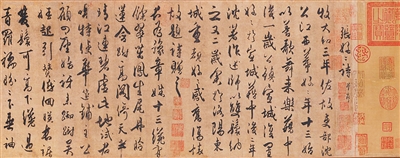 張好好詩并序
牧大和三年佐故吏部沈
公江西幕好好年十三始
以善歌舞來樂籍中
後一歲公鎮宣城復置
好好於宣城籍中後二年
沈著作述師以雙鬟納
之又二歲余於洛陽東
城重覩好好感舊傷懷
故題詩贈之
君為豫章姝十三纔有
餘翠茁鳳生尾丹
蓮含跗高閣倚天半
晴江連碧虛此地試君
唱特使華筵鋪主公
顧四座始訝來踟躕吳
娃起引贊低佪映長裾
雙鬟可高下纔過
青羅襦盼盼下垂袖